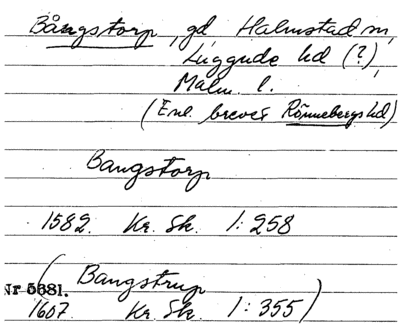 Bångstorp, gd Halmstad sn,
Luggude hd (?),
Malm. l.
(Enl. brevet Rönnebergs hd)
Bangstorp
1582. Kr. Sk. 1:258
(Bangstrup
Nr 5681.
1607 Kr. Sk. 1:355)